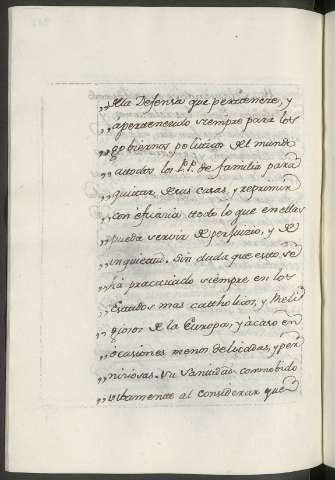 „ dela Defensa que pertenece, y
„ á pertenecido siempre para los
„ gobiernos politicos del mundo
„ atodos los P.P. de familia para
„ quitar de sus casas, y reprimir
„ con eficacia todo lo que en ellas
„ pueda servir de perjuizio, y de
„ inquietud. Sin duda que esto se
„ há practicado siempre en los
„ Estados mas cattholicos, y Reli
„ giosos de la Europa, y ácaso en
„ ócasiones menos delicadas, y per
„ niciosas. Su Santidad commobido
„ vibamente al considerar que